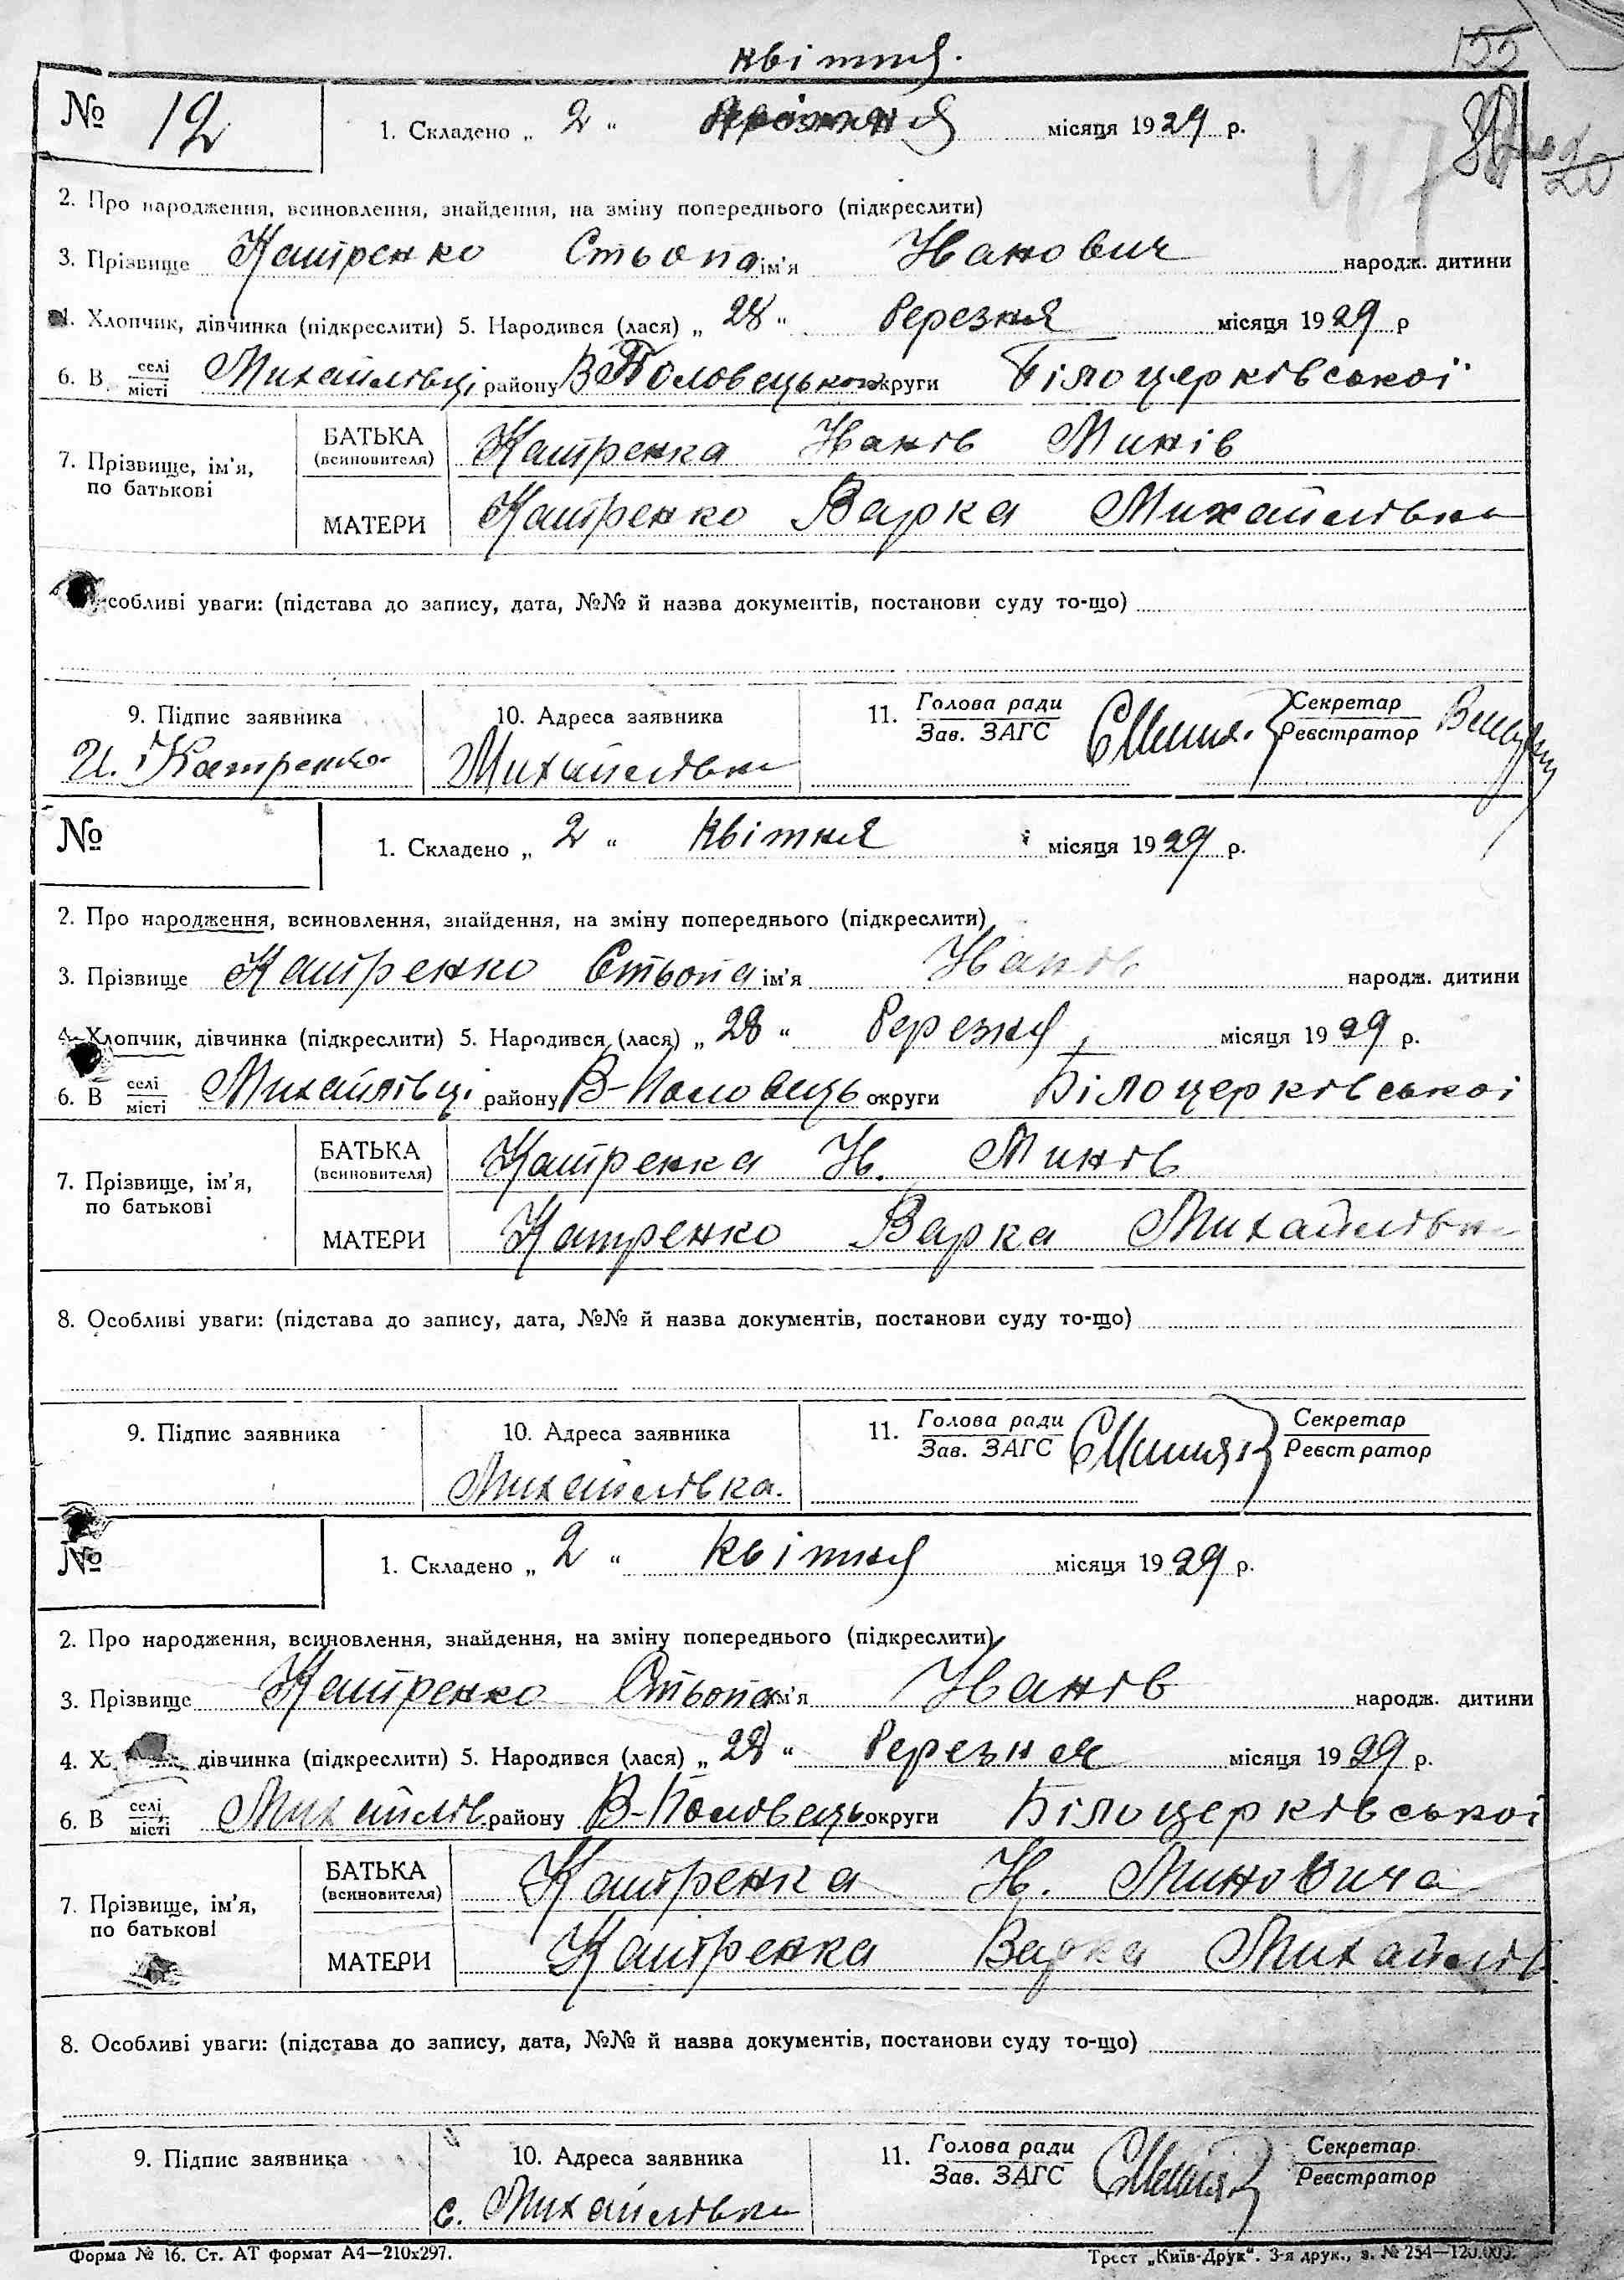 квітня.
155
№ 12
1. Складено „ 2 " місяця 1929 р.
47
2. Про народження, всиновлення, знайдення, на зміну попереднього (підкреслити)
3. Прізвище Катренко Стьопа ім'я Іванович народж. дитини
4. Хлопчик, дівчинка (підкреслити) 5. Народився (лася) „ 28 " березня місяця 1929 р
6. В селі/місті Михайлівці району В Половецького округи Білоцерківської
7. Прізвище, ім'я, по батькові
БАТЬКА (всиновителя) Катренка Іванів Минів
МАТЕРИ Катренко Варка Михайлівна
собливі уваги: (підстава до запису, дата, №№ й назва документів, постанови суду то-що)
9. Підпис заявника 10. Адреса заявника 11. Голова ради/Зав. ЗАГС Секретар/Реєстратор
И. Катренко Михайлівка
№
1. Складено „ 2 " квітня місяця 1929 р.
2. Про народження, всиновлення, знайдення, на зміну попереднього (підкреслити)
3. Прізвище Катренко Стьопа ім'я Іванів народж. дитини
4. Хлопчик, дівчинка (підкреслити) 5. Народився (лася) „ 28 " березня місяця 1929 р.
6. В селі/місті Михайлівці району В-Половець округи Білоцерківської
7. Прізвище, ім'я, по батькові
БАТЬКА (всиновителя) Катренка Ів. Минів
МАТЕРИ Катренко Варка Михайлівн
8. Особливі уваги: (підстава до запису, дата, №№ й назва документів, постанови суду то-що)
9. Підпис заявника 10. Адреса заявника 11. Голова ради/Зав. ЗАГС Секретар/Реєстратор
Михайлівка.
№
1. Складено „ 2 " квітня місяця 1929 р.
2. Про народження, всиновлення, знайдення, на зміну попереднього (підкреслити)
3. Прізвище Катренко Стьопа ім'я Іванів народж. дитини
4. Х дівчинка (підкреслити) 5. Народився (лася) „ 28 " березня місяця 1929 р.
6. В селі/місті Михайлів району В-Половець округи Білоцерківської
7. Прізвище, ім'я, по батькові
БАТЬКА (всиновителя) Катренка Ів. Миновича
МАТЕРИ Катренка Варка Михайлів
8. Особливі уваги: (підстава до запису, дата, №№ й назва документів, постанови суду то-що)
9. Підпис заявника 10. Адреса заявника 11. Голова ради/Зав. ЗАГС Секретар/Реєстратор
с. Михайлівка
Форма № 16. Ст. АТ формат А4—210х297. Трест „Київ-Друк". 3-я друк., з. № 254—120.000.